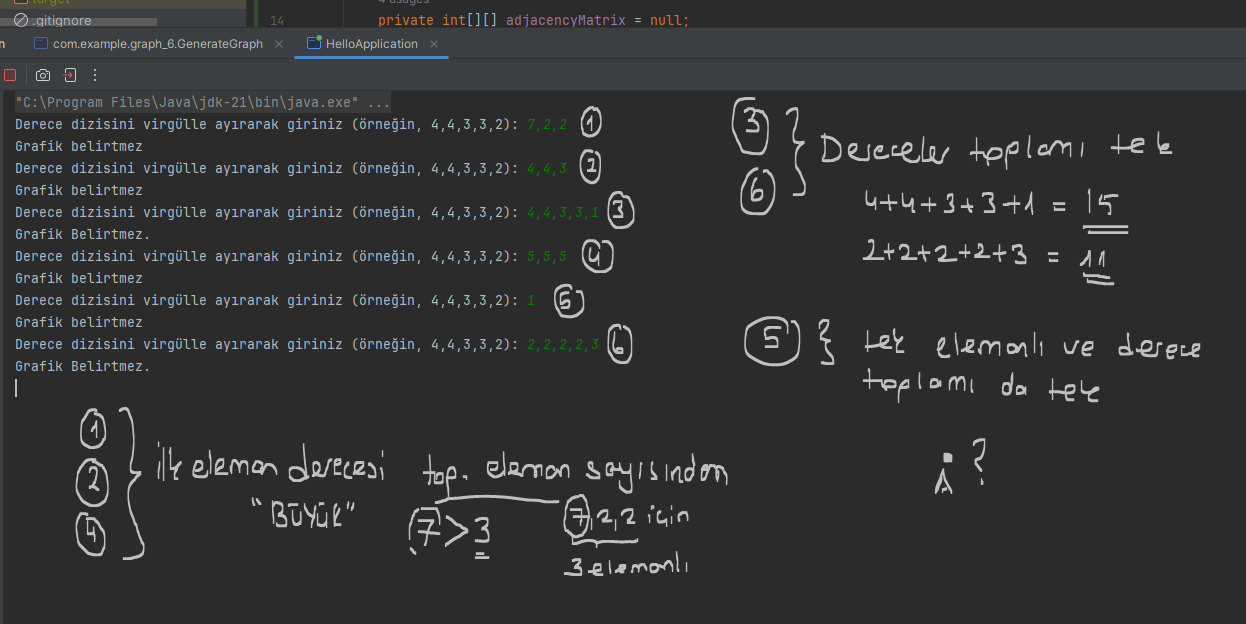 target
.gitignore
4 usages
14 private int[][] adjacencyMatrix = null;
com.example.graph_6.GenerateGraph
HelloApplication
"C:\Program Files\Java\jdk-21\bin\java.exe" ...
Derece dizisini virgülle ayırarak giriniz (örneğin, 4,4,3,3,2): 7,2,2 1
Grafik belirtmez
Derece dizisini virgülle ayırarak giriniz (örneğin, 4,4,3,3,2): 4,4,3 2
Grafik belirtmez
Derece dizisini virgülle ayırarak giriniz (örneğin, 4,4,3,3,2): 4,4,3,3,1 3
Grafik Belirtmez.
Derece dizisini virgülle ayırarak giriniz (örneğin, 4,4,3,3,2): 5,5,5 4
Grafik belirtmez
Derece dizisini virgülle ayırarak giriniz (örneğin, 4,4,3,3,2): 1 5
Grafik belirtmez
Derece dizisini virgülle ayırarak giriniz (örneğin, 4,4,3,3,2): 2,2,2,2,3 6
Grafik Belirtmez.
3
6
} Dereceler toplamı tek
4+4+3+3+1 = 15
2+2+2+2+3 = 11
5 } tek elemanlı ve derece
toplamı da tek
1
2
4
} ilk eleman derecesi top. eleman sayısından
"BÜYÜK"
7>3
7,2,2 için
3 elemanlı
1 ?